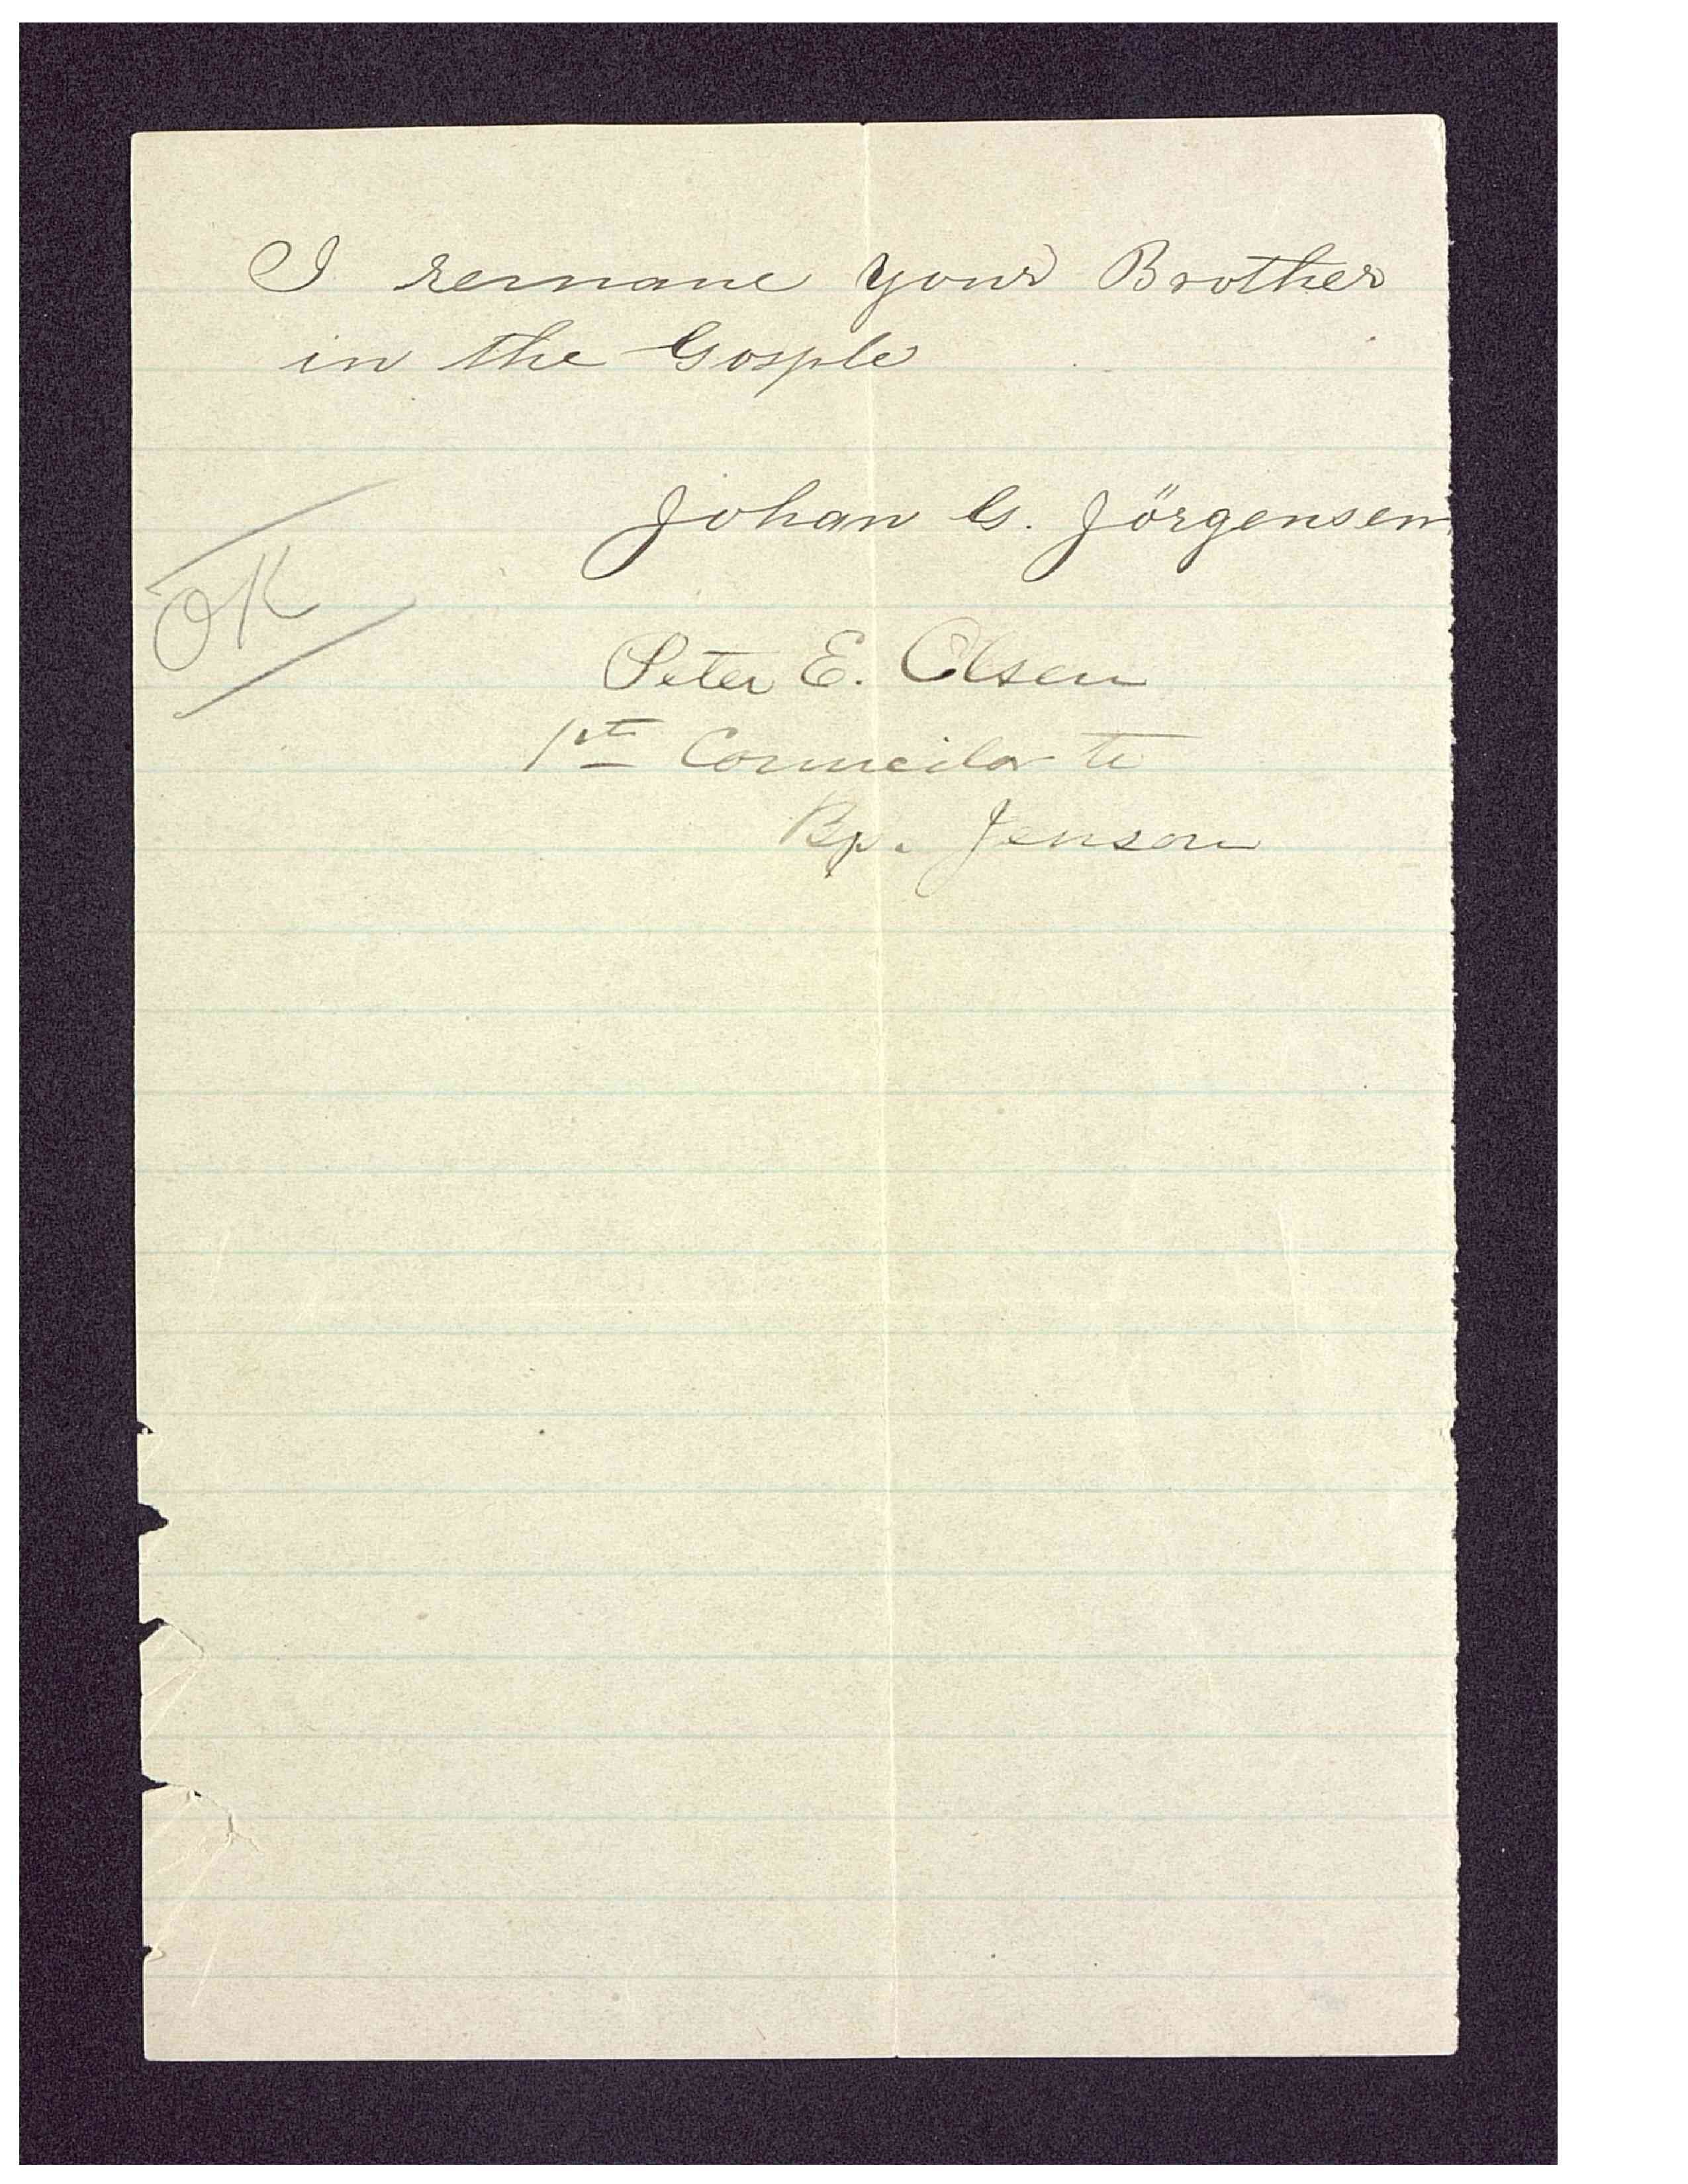 I remane your Brother
in the Gosple
Johan G. Jörgensen
OK
Peter E. Olsen
1st Councilor to
Bp. Jenson